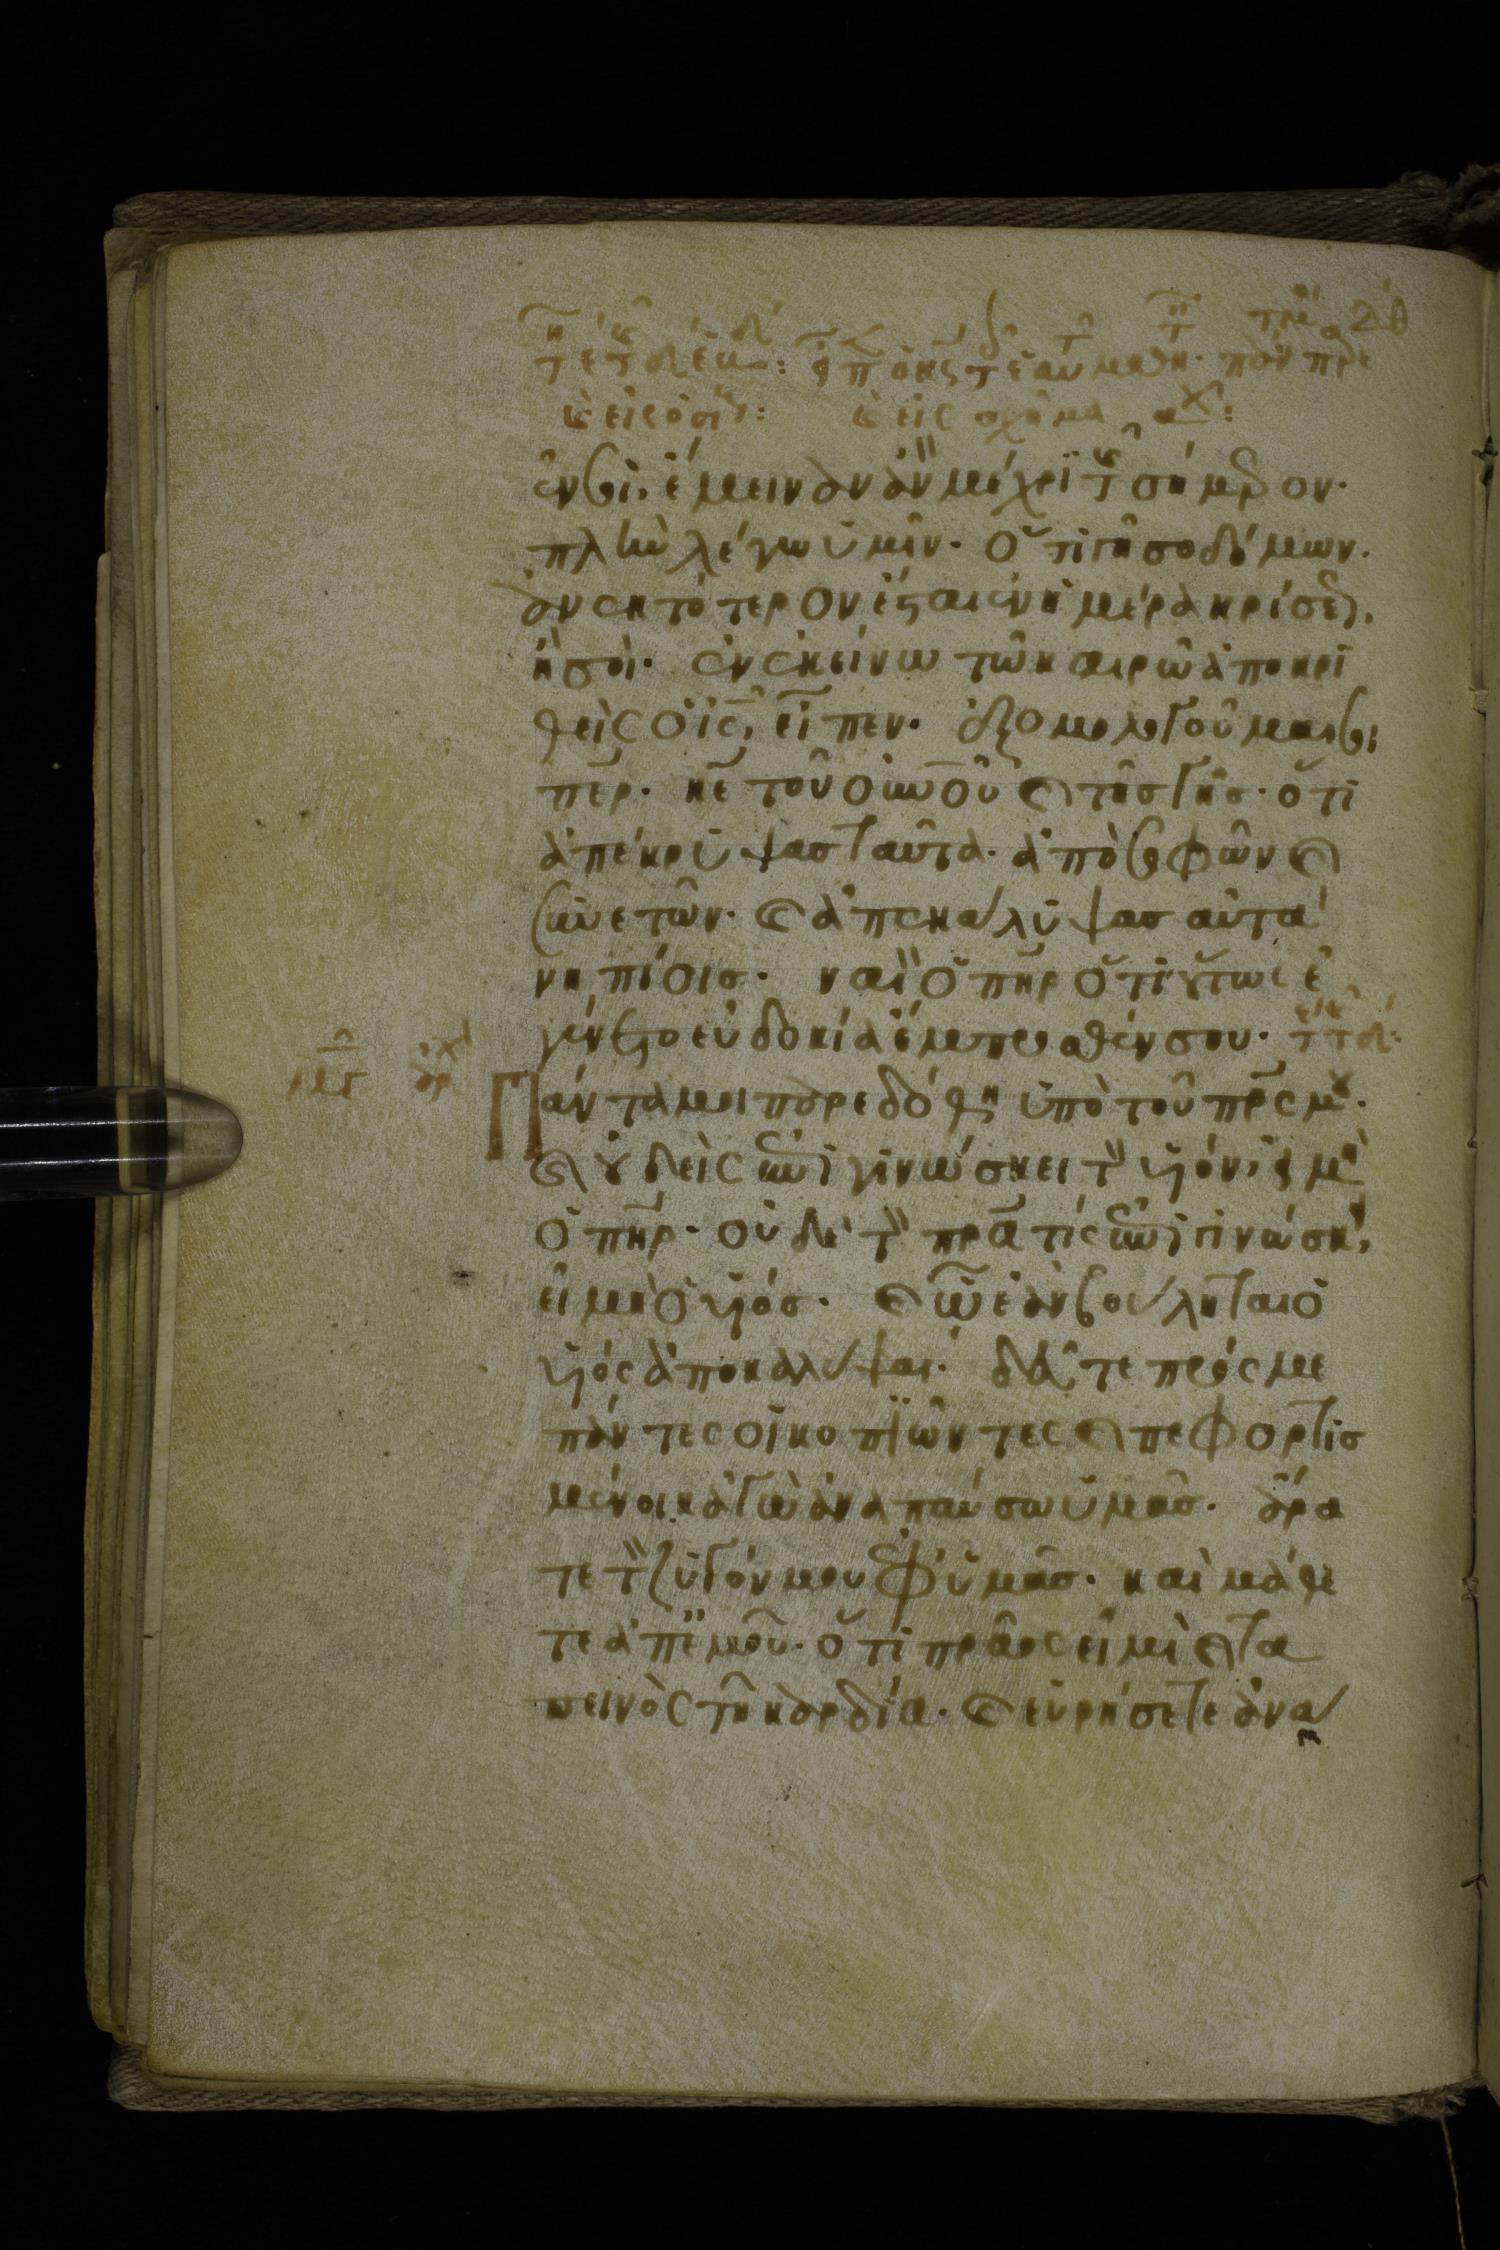 κ εἰς ὁσί: κ εἰς σχῆμα
ἐν σοί, ἔμειναν ἂν μέχρι τῆς σήμερον·
πλὴν λέγω ὑμῖν· ὅτι γῆ σοδόμων·
ἀνεκτότερον ἔσται ἐν ἡμέρα κρίσεως,
ἢ σοί· ἐν ἐκείνω τῶ καιρῶ ἀποκρι
θεὶς ὁ ις, εἶπεν· ἐξομολογοῦμαι σοι
περ· κε τοῦ οὐνου καὶ τῆς γῆς· ὅτι
ἀπέκρυψας ταῦτα· ἀπὸ σοφῶν καὶ
συνετῶν· καὶ ἀπεκάλυψας αὐτὰ
νηπίοις· ναὶ ὁ πηρ ὅτι οὕτως ἐ
γένετο εὐδοκία ἔμπροσθέν σου·
Πάντα μοι παρεδόθη ὑπὸ τοῦ πρς μου·
καὶ οὐδεὶς ἐπιγινώσκει τὸν υἱόν, εἰ μὴ
ὁ πηρ· οὐδὲ τὸν πρα τίς ἐπιγινώσκει,
εἰ μὴ ὁ υἱός· καὶ ὧ ἐὰν βούληται ὁ
υἱός ἀποκαλύψαι· δεῦτε πρός με
πάντες οἱ κοπιῶντες καὶ πεφορτισ
μένοι κἀγὼ ἀναπαύσω ὑμᾶς· ἄρα
τε τὸν ζυγόν μου ἐφ' ὑμᾶς· καὶ μάθε
τε ἀπ' ἐμοῦ· ὅτι πρᾶος εἰμὶ καὶ τα
πεινὸς τῆ καρδία· καὶ εὑρήσετε ἀνά